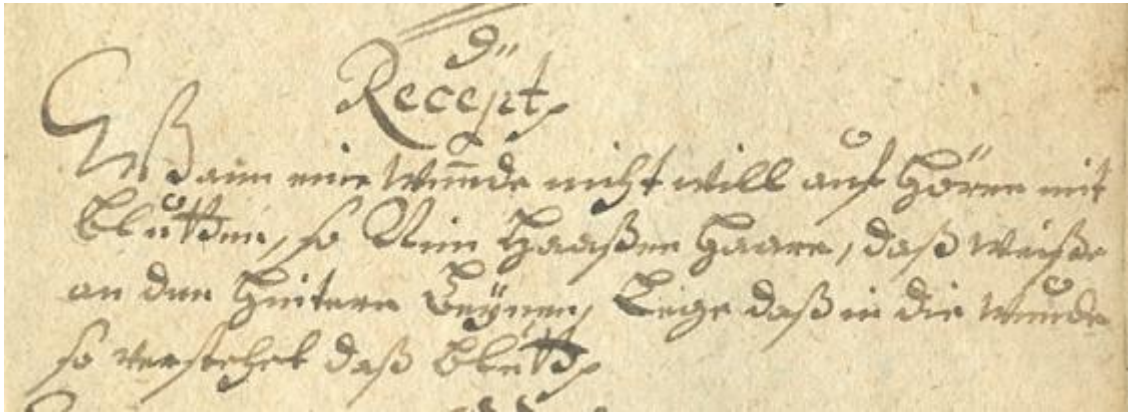 9"
Recept.
Wann eine Wunde nicht will auf Hören mit
Blutten, so Nim Haaßen Haare, daß weiße
an den Hintern Beÿnen, Lege daß in die Wunde
so verstehet daß Blutt.